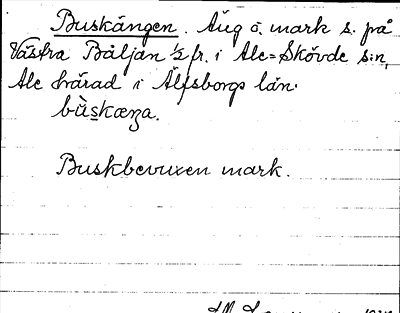 Buskängen. Äng o. mark s. på
Västra Båljan ½ fr. i Ale-Skövde s:n,
Ale härad i Älfsborgs län.
bùskæŋa.
Buskbevuxen mark.